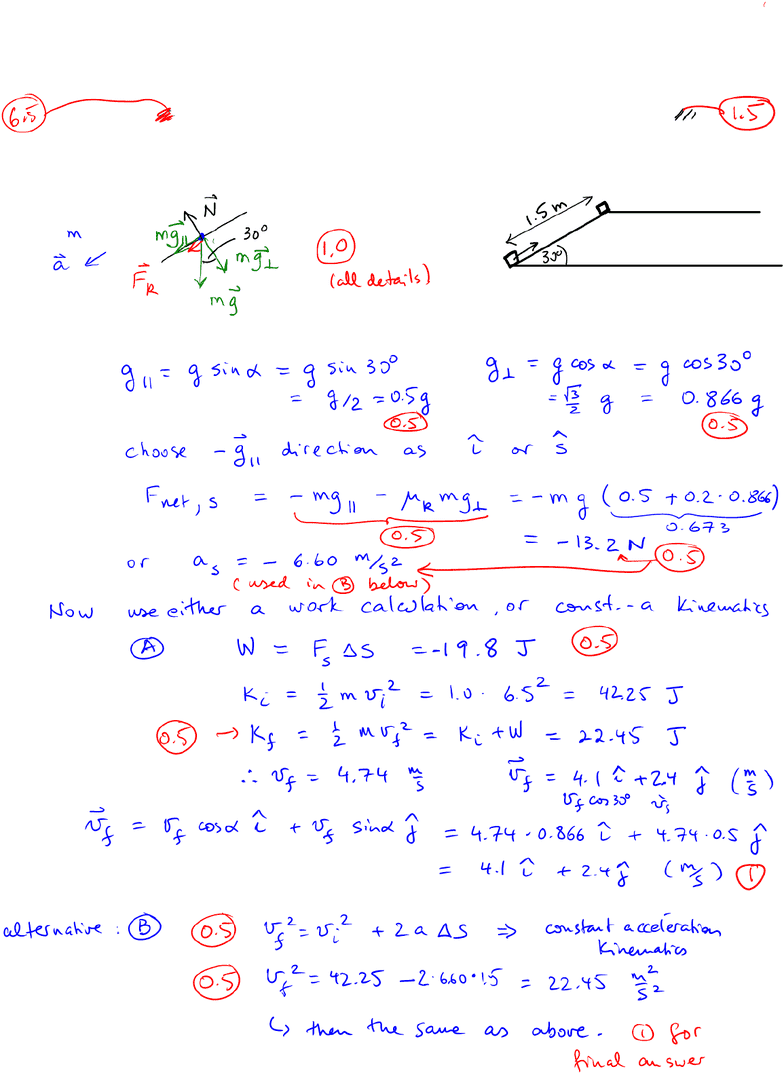 6.5 1.5
N⃗ 1.5 m
m mg⃗∥ 30° 1,0 30°
a⃗ mg⃗⊥ (all details)
F⃗k
mg⃗
g∥ = g sin α = g sin 30° g⊥ = g cos α = g cos 30°
= g/2 = 0.5g = √3/2 g = 0.866 g
0.5 0.5
choose −g⃗∥ direction as î or ŝ
Fnet,s = −mg∥ − μk mg⊥ = −mg (0.5 + 0.2 · 0.866)
0.5 0.673
= −13.2 N 0.5
or as = − 6.60 m/s²
(used in B below)
Now use either a work calculation, or const.-a kinematics
A W = Fs ΔS = −19.8 J 0.5
Ki = ½ m vi² = 1.0 · 6.5² = 42.25 J
0.5 → Kf = ½ m vf² = Ki + W = 22.45 J
∴ vf = 4.74 m/s v⃗f = 4.1 î + 2.4 ĵ (m/s)
vf cos 30°
v⃗f = vf cosα î + vf sinα ĵ = 4.74 · 0.866 î + 4.74 · 0.5 ĵ
= 4.1 î + 2.4 ĵ (m/s) 1
alternative : B 0.5 vf² = vi² + 2 a ΔS ⇒ constant acceleration
kinematics
0.5 vf² = 42.25 − 2·6.60·1.5 = 22.45 m²/s²
↳ then the same as above. 1 for
final answer